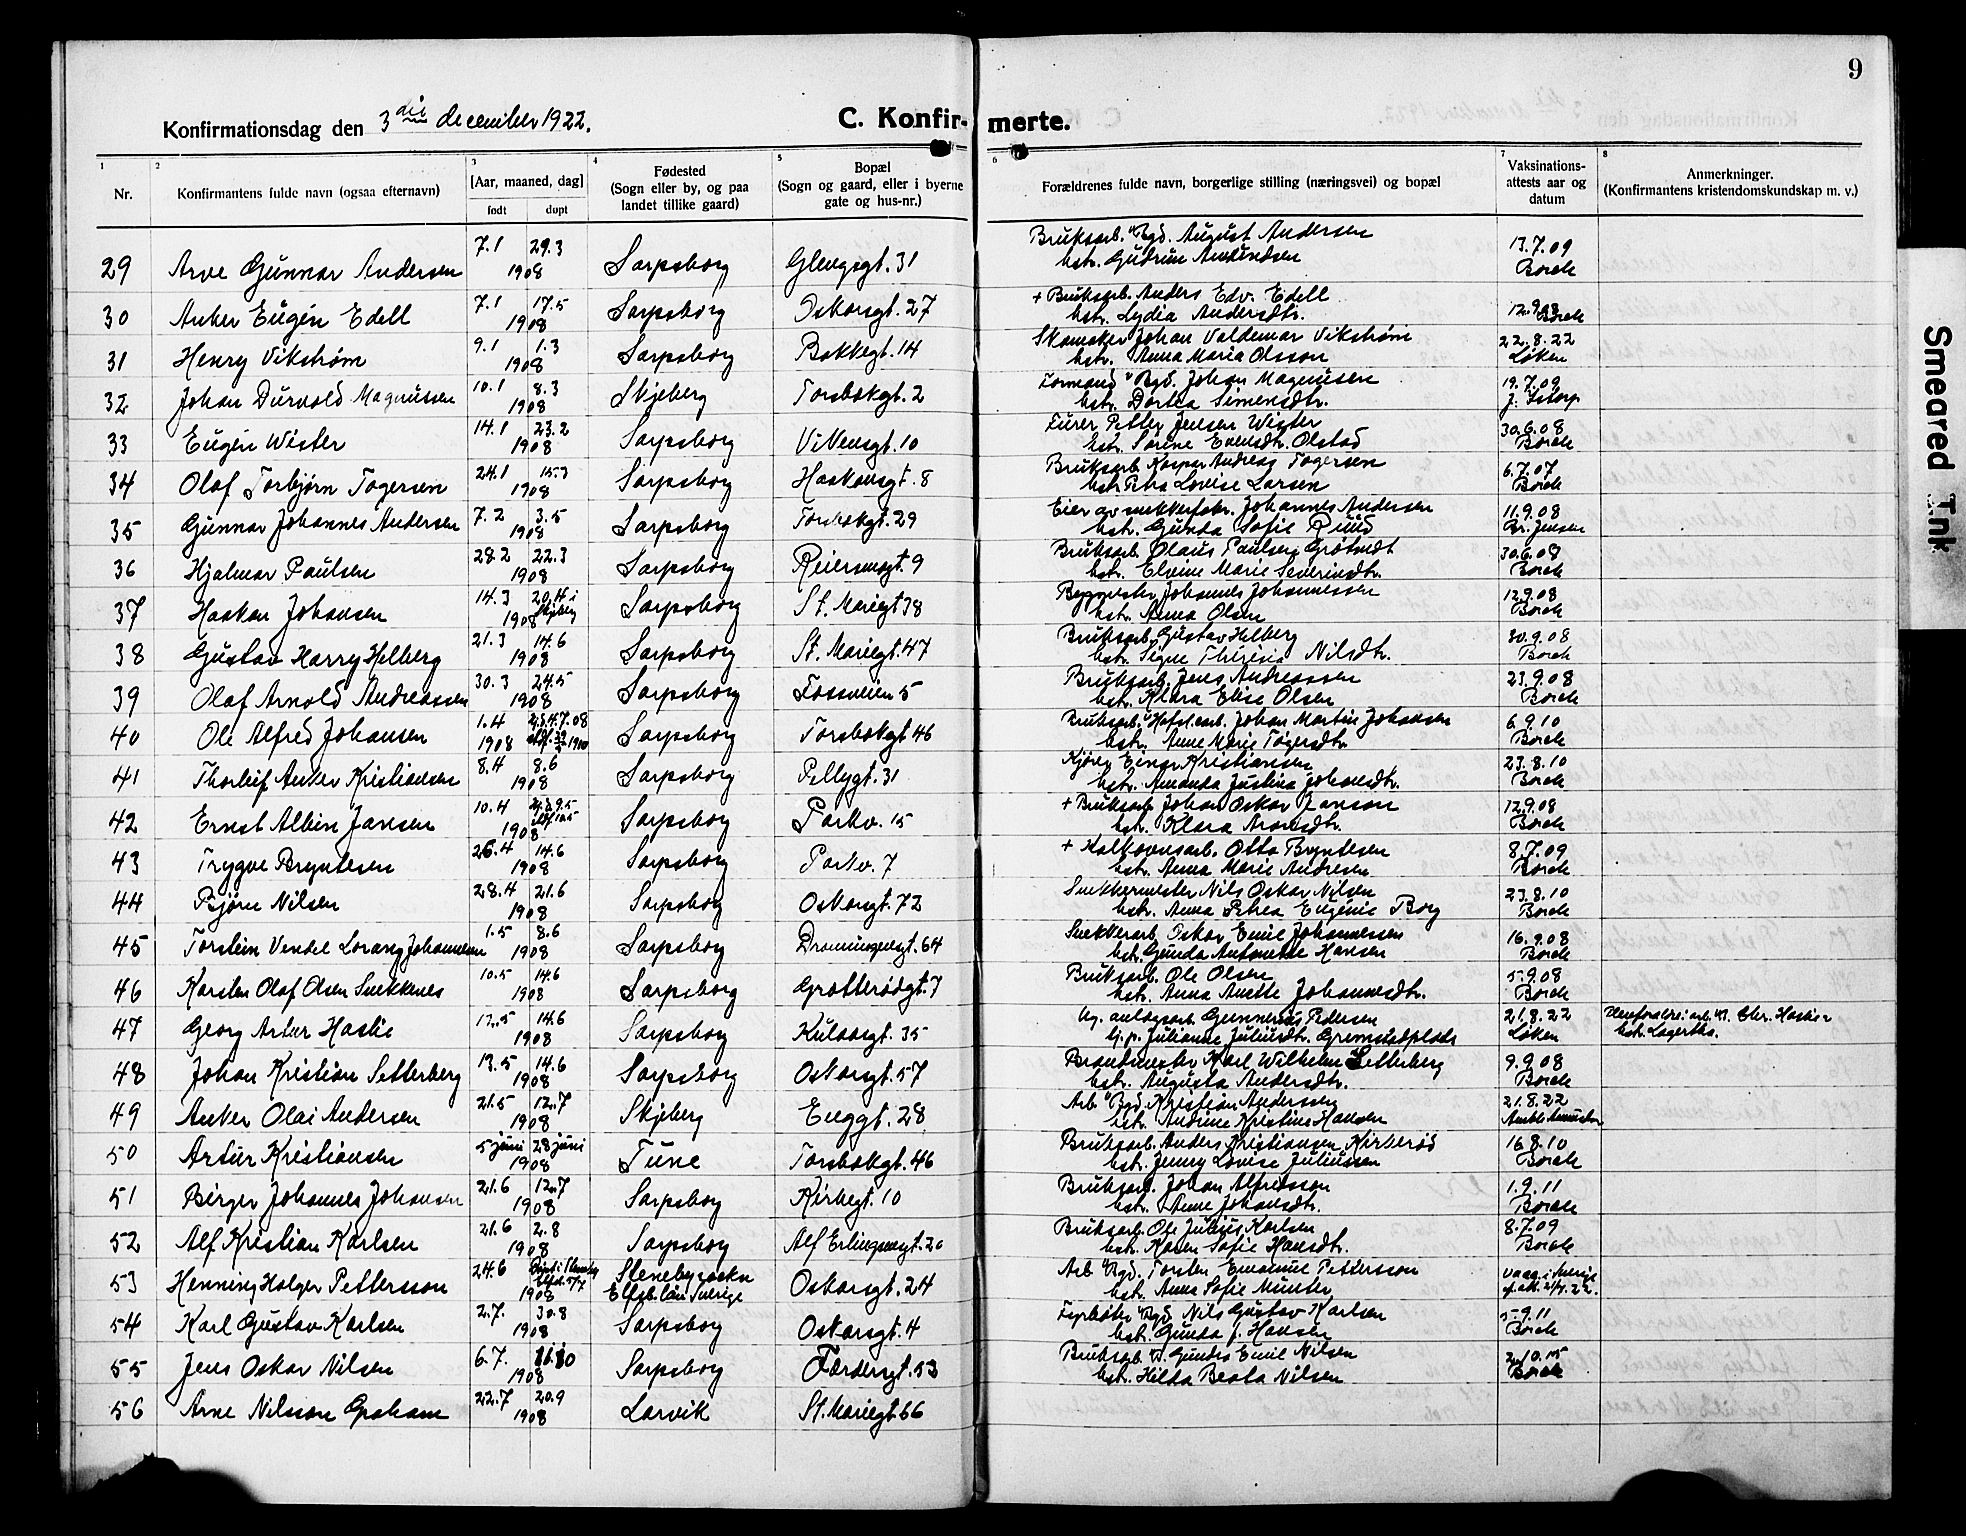 9
Konfirmationsdag den 3die december 1922.
C. Konfir- merte.
1 2 3 4 5 6 7 8
Nr.
Konfirmantens fulde navn (ogsaa efternavn)
[Aar, maaned, dag]
født døpt
Fødested
(Sogn eller by, og paa
landet tillike gaard)
Bopæl
(Sogn og gaard, eller i byerne
gate og hus-nr.)
Forældrenes fulde navn, borgerlige stilling (næringsvei) og bopæl
Vaksinations-
attests aar og
datum
Anmerkninger.
(Konfirmantens kristendomskundskap m. v.)
29 Arve Gunnar Andersen 7.1 29.3 1908 Sarpsborg Glengsgt. 31 Bruksarb. August Andersen 13.7.09
hstr. Gudrun Amundsen Borch
30 Anker Eugén Edell 7.1 17.5 1908 Sarpsborg Oskarsgt. 27 + Bruksarb. Anders Edv. Edell
hstr. Lydia Andersdtr. Borch
31 Henry Vikstrøm 9.1 1.3 1908 Sarpsborg Bakkegt. 14 Skomaker Johan Valdemar Vikstrøm 22.8.22
hstr. Anna Maria Olsson Løken
32 Johan Durvald Magnussen 10.1 8.3 1908 Skjeberg Torsbekgt. 2 Formand Johan Magnussen 19.7.09
hstr. Dortea Simensdtr.
33 Eugén Wister 14.1 23.2 1908 Sarpsborg Vikengt. 10 Furer Petter Jensen Wister 30.6.08
hstr. Sørine Evensdtr. Olstad Borch
34 Olaf Torbjørn Togersen 24.1 15.3 1908 Sarpsborg Haakonsgt. 8 Bruksarb. Kaspar Andreas Togersen 6.7.07
hstr. Petra Lovise Larsen Borch
35 Gunnar Johannes Andersen 7.2 3.5 1908 Sarpsborg Torsbekgt. 29 Eier av snekkerfabr. Johannes Andersen 11.9.08
hstr. Gunda Sofie Ruud Br. Jensen
36 Hjalmar Paulsen 28.2 22.3 1908 Sarpsborg Reiersensgt. 9 Bruksarb. Olaus Paulsen 30.6.08
hstr. Elvine Marie Severinsdtr. Borch
37 Haakon Johansen 14.3 20.4 i Skjeberg 1908 Sarpsborg St. Mariegt 38 Johannes Johannessen 12.9.08
hstr. Anna Olsen Borch
38 Gustav Harry Helberg 21.3 14.6 1908 Sarpsborg St. Mariegt. 47 Bruksarb. Gustav Helberg 30.9.08
hstr. Signe Theresia Nilsdtr. Borch
39 Olaf Arnold Andreassen 30.3 24.5 1908 Sarpsborg Fossveien 5 Bruksarb. Jens Andreassen 23.9.08
hstr. Klara Elise Olsen Borch
40 Ole Alfred Johansen 1.4 1908 Sarpsborg Torsbekgt. 46 Bruksarb. Johan Martin Johansen 6.9.10
hstr. Anne Marie Togersdtr. Borch
41 Thorleif Anker Kristiansen 8.4 8.6 1908 Sarpsborg Pellygt. 31 Kjører Einar Kristiansen 23.8.10
hstr. Amanda Justina Johansdtr. Borch
42 Ernst Albin Jansen 10.4 1908 Sarpsborg Parkv. 15 + Bruksarb. Johan Oskar Janson 12.9.08
hstr. Klara Aronsdtr. Borch
43 Trygve Bryntesen 26.4 14.6 1908 Sarpsborg Parkv. 7 + Kalkovnsarb. Otto Bryntesen 8.7.09
hstr. Anna Marie Andresen Borch
44 Bjørn Nilsen 28.4 21.6 1908 Sarpsborg Oskarsgt. 72 Snekkermester Nils Oskar Nilsen 23.8.10
hstr. Anna Petrea Eugenie Borg Borch
45 Torstein Vendel Lorang Johannessen 1.5 8.6 1908 Sarpsborg Dronningensgt. 64 Snekkerarb. Oskar Emil Johannessen 16.9.08
hstr. Gunda Antonette Hansen Borch
46 Karsten Olaf Olsen Snekkenes 10.5 14.6 1908 Sarpsborg Grotterødgt. 7 Bruksarb. Ole Olsen 5.9.08
hstr. Anna Anette Johannesdtr. Borch
47 Georg Artur Haslie 12.5 14.6 1908 Sarpsborg Kulaasgt. 35 Ug. anlægsarb. Gunnerius Pedersen 21.8.22 Pleieforældre: arb. Chr. Haslie
g.p. Julianne Juliusdtr. Grimstadplads Løken hstr. Lagertha.
48 Johan Kristian Setterberg 13.5 14.6 1908 Sarpsborg Oskarsgt. 57 Brandmester Karl Wilhelm Setterberg 9.9.08
hstr. Augusta Andersdtr. Borch
49 Anker Olai Andersen 21.5 12.7 1908 Skjeberg Enggt. 28 Arb. Kristian Andersen 21.8.22
hstr. Andrine Kristine Hansen
50 Artur Kristiansen 5 juni 28 juni 1908 Tune Torsbekgt. 46 Bruksarb. Anders Kristiansen Kirkerød 16.8.10
hstr. Jenny Lovise Juliussen Borch
51 Birger Johannes Johansen 21.6 12.7 1908 Sarpsborg Kirkegt. 10 Bruksarb. Johan Alfredsson 1.9.11
hstr. Anne Johansdtr. Borch
52 Alf Kristian Karlsen 21.6 2.8 1908 Sarpsborg Alf Erlingsensgt. 20 Bruksarb. Ole Julius Karlsen 8.7.09
hstr. Karen Sofie Hansdtr. Borch
53 Henning Holger Pettersson 24.6 1908 Stenebysocken Oskarsgt. 24 Arb. Torsten Emanuel Pettersson vacc. i Sverige
Elfsb. län Sverige hstr. Anna Sofie Münter
54 Karl Gustav Karlsen 2.7. 30.8 1908 Sarpsborg Oskarsgt. 4 Fyrbøter Nils Gustav Karlsen 5.9.11
hstr. Gunda J. Hansen Borch
55 Jens Oskar Nilsen 6.7. 1908 Sarpsborg Færdersgt. 53 Bruksarb. Gunders Emil Nilsen
hstr. Hilda Beata Nilsen Borch
56 Arne Nilsson Graham 22.7 20.9 1908 Larvik St. Mariegt. 66
Smeared Ink